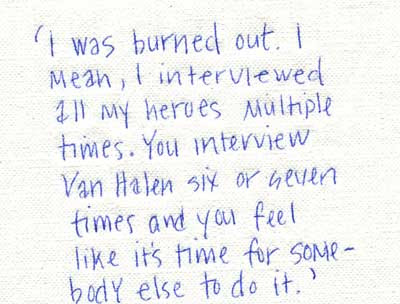 'I was burned out. I
mean, I interviewed
all my heroes multiple
times. You interview
Van Halen six or seven
times and you feel
like it's time for some-
body else to do it.'